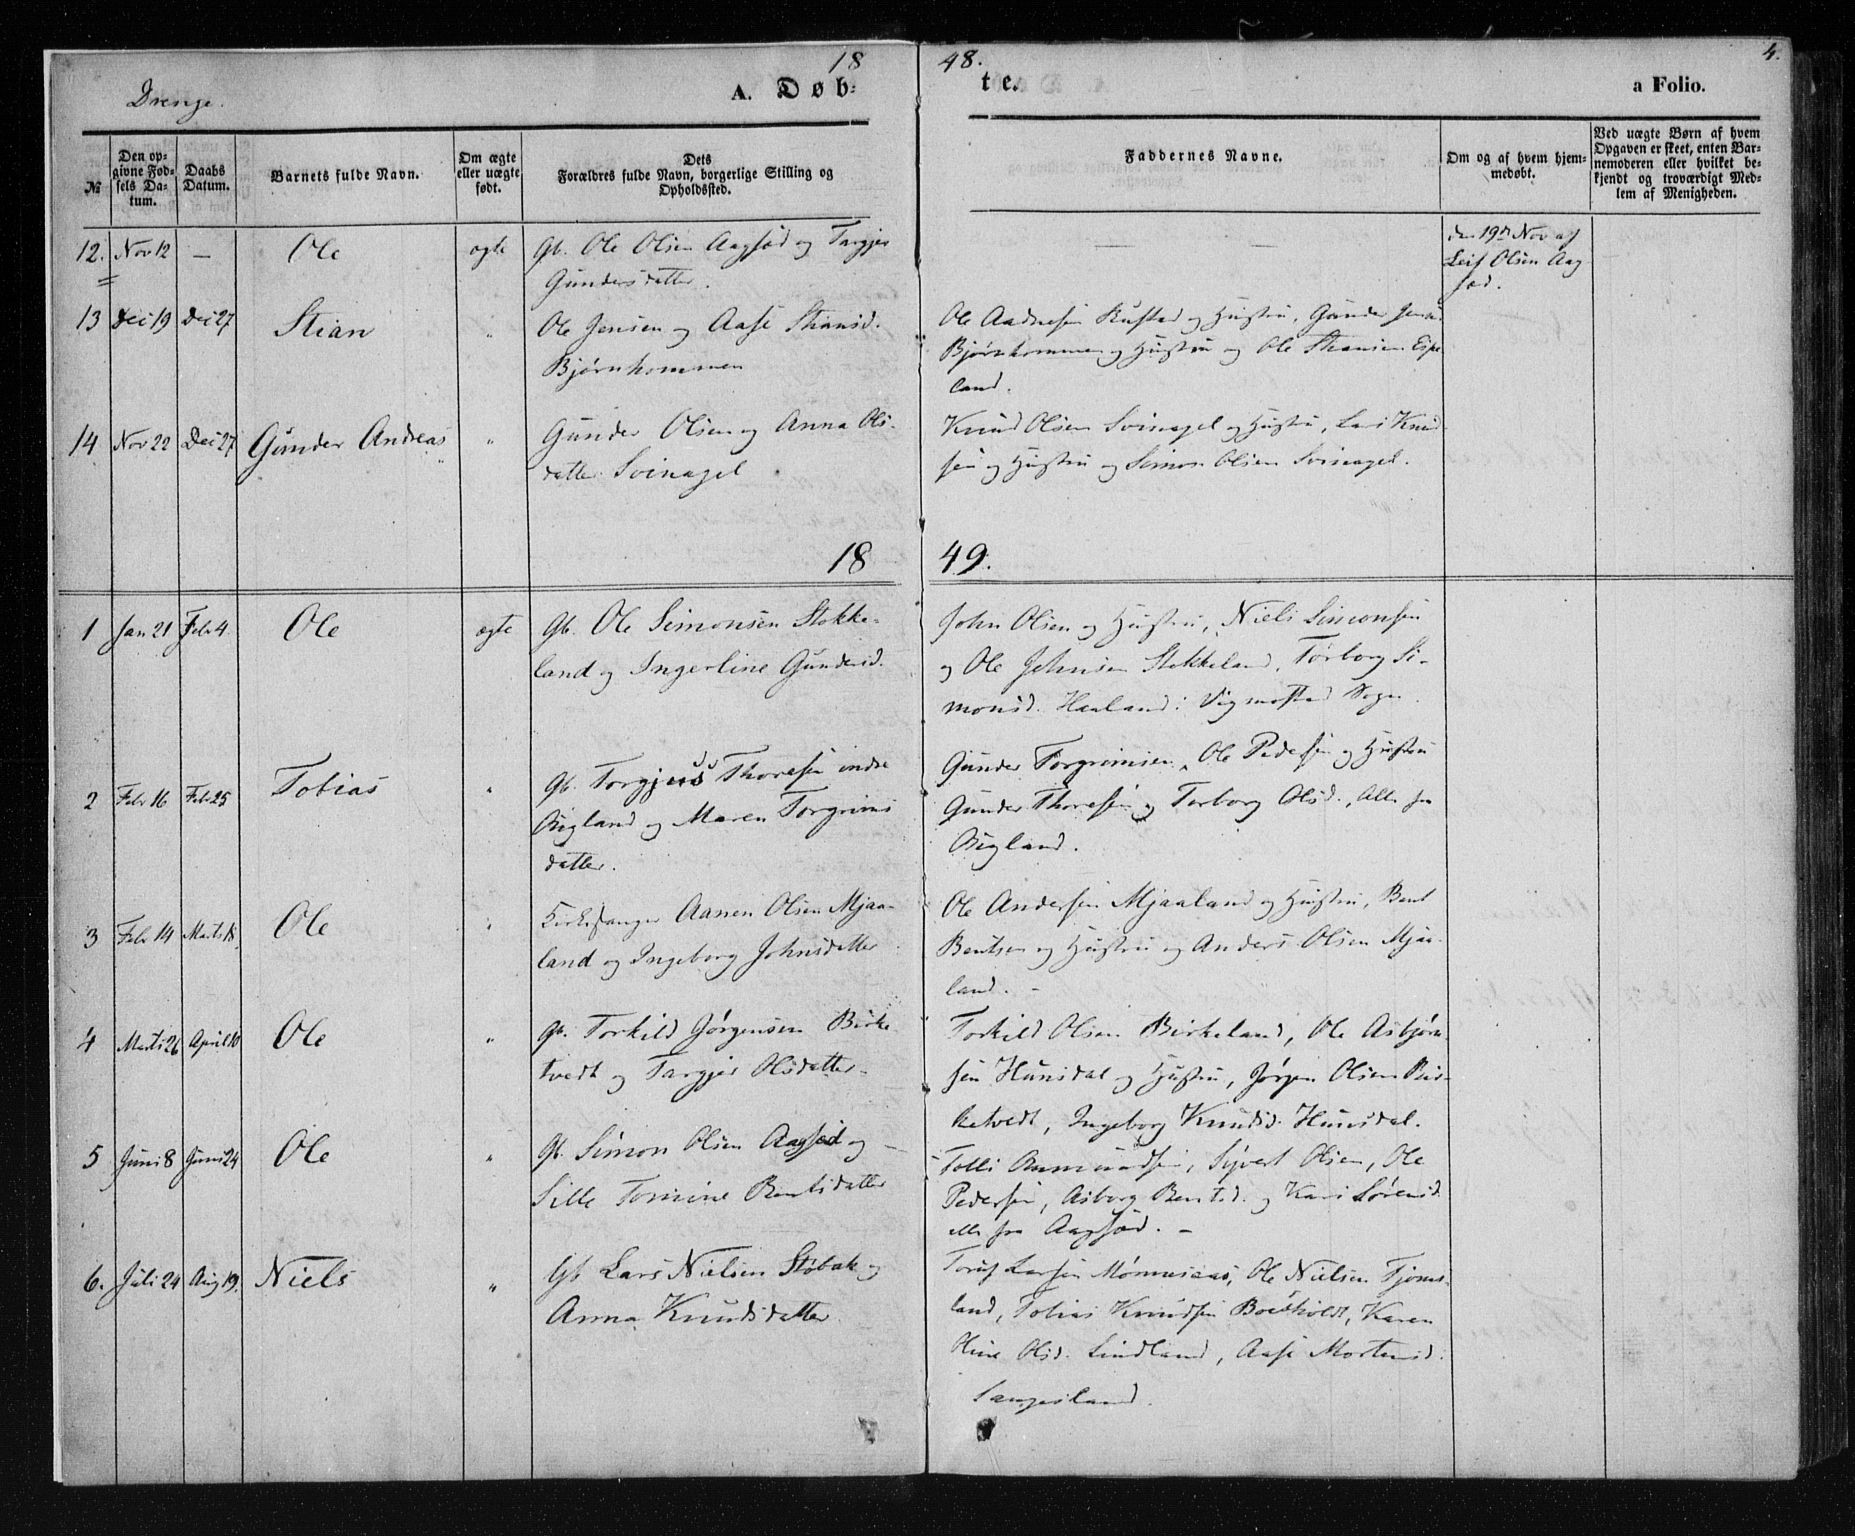 18
48.
4.
Drenge.
A. Døb-
te.
a Folio.
№
Den op-
givne Fød-
sels Da-
tum.
Daabs
Datum.
Barnets fulde Navn.
Om ægte
eller uægte
født.
Dets
Forældres fulde Navn, borgerlige Stilling og
Opholdssted.
Faddernes Navne.
Om og af hvem hjem-
medøbt.
Ved uægte Børn af hvem
Opgaven er skeet, enten Bar-
nemoderen eller hvilket be-
kjendt og troværdigt Med-
lem af Menigheden.
12. Nov 12 — Ole ægte Gb. Ole Olsen Aagsød og Targjer
Gundersdatter.
— —
den 19n Nov af
Leif Olsen Aag
sød.
13 Dec 19 Dec 27 Stian " Ole Jensen og Aase Stiansd.
Bjørnkommen
Ole Aadnesen Kustad og Hustru, Gunder Jens.
Bjørnkommen og Hustru og Ole Stiansen Espe
land.
14 Nov 22 Dec 27 Gunder Andreas " Gunder Olsen og Anna Ols-
datter Svinagel
Knud Olsen Svinagel og Hustru, Lars Knud
sen og Hustru og Simon Olsen Svinagel.
18
49.
1 Jan 21 Febr 4. Ole ægte Gb. Ole Simonsen Stokke-
land og Ingerline Gundersd.
John Olsen og Hustru, Niels Simonsen
og Ole Johnsen Stokkeland, Torborg Si-
monsd. Haaland i Vigmostad Sogn.
2 Febr 16 Febr 25 Tobias " Gb. Torgjus Thoresen indre
Bigland og Maren Torgrims
datter.
Gunder Torgrimsen, Ole Pedersen og Hustru
Gunder Thoresen og Torborg Olsd., Alle fra
Bigland.
3 Febr 14 Marts 18 Ole " Kirkesanger Aanen Olsen Mjaa-
land og Ingeborg Johnsdatter
Ole Andersen Mjaaland og Hustru, Bent
Bentsen og Hustru og Anders Olsen Mjaa-
land. -
4 Marts 26 April 10 Ole " Gb. Torkild Jørgensen Birke-
tvedt og Targjer Olsdatter.
Torkild Olsen Birkeland, Ole Asbjørn-
sen Hunsdal og Hustru, Jørgen Olsen Bir-
ketvedt, Ingeborg Knudsd. Hunsdal.
5 Juni 8 Juni 24 Ole " Gb. Simon Olsen Aagsød og —
Sille Tomine Bentsdatter
Tolli Aanmundsen, Syvert Olsen, Ole
Pedersen, Asborg Bentsd. og Kari Sørensd.
alle fra Aagsød. -
6. Juli 24 Aug 19. Niels " Gb Lars Nielsen Støbak og
Anna Knudsdatter.
Larsen Mønnesaas, Ole Nielsen Fjoms-
land, Tobias Knudsen Boesholdt, Karen
Oline Olsd. Lindland, Aase Mortensd.
Saugesland.